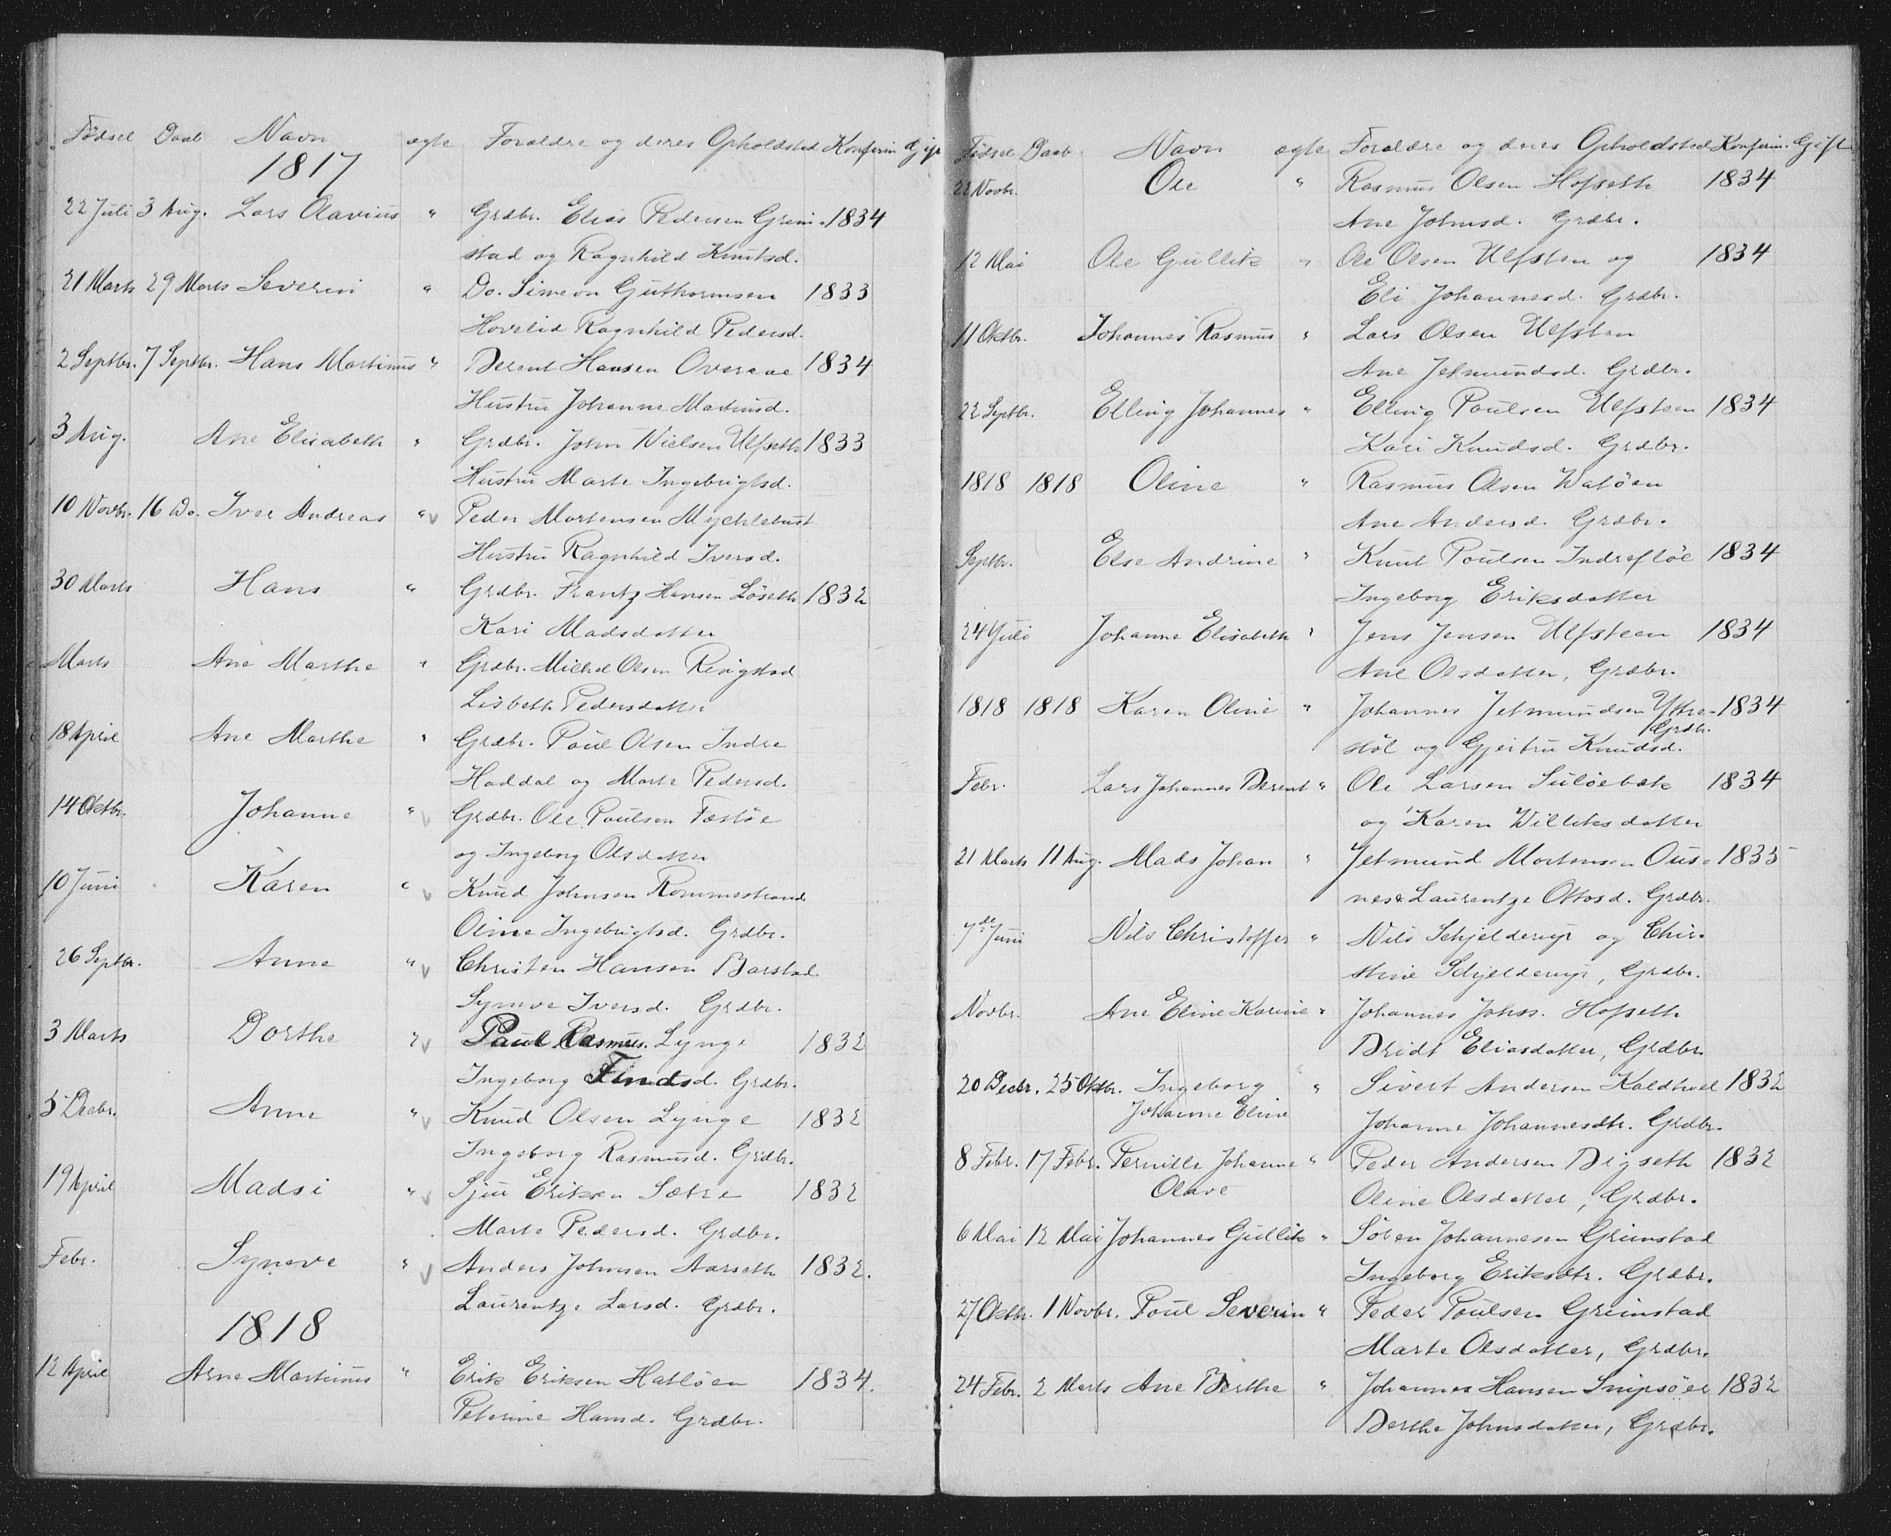 Fødsel Daab Navn ægte Forældre og deres Opholdsted Konfirm. Gift
1817
22 Juli 3 Aug. Lars Olavius " Grdbr. Elias Pedersen Grim- 1834
stad og Ragnhild Knutsd.
21 Marts 29 Marts Severin " Do. Simeon Guthormsen 1833
Hovelid Ragnhild Pedersd.
2 Septbr. 7 Septbr. Hans Martinus " Berent Hansen Overaae 1834
Hustru Johanne Martinsd.
3 Aug. Ane Elisabeth " Grdbr. John Nielsen Ulfseth 1833
Hustru Marte Ingebrigtsd.
10 Novbr. 16 Do. Iver Andreas " v Peder Mortensen Mychlebust
Hustru Ragnhild Iversd.
30 Marts Hans " Grdbr. Frantz Hansen Løseth 1832
Kari Madsdatter
Marts Ane Marthe " Grdbr. Michel Olsen Ringstad
Lisbeth Pedersdatter
18 April Ane Marthe " Grdbr. Poul Olsen Indre
Haddal og Marte Pedersd.
14 Oktbr. Johanne " v Grdbr. Ole Poulsen Festøe
og Ingeborg Olsdatter
10 Juni Karen " v Knud Johnsen Rommestrand
Oline Ingebrigtsd. Grdbr.
26 Septbr. Anne " v Christen Hansen Barstad
Synve Iversd. Grdbr.
3 Marts Dorthe " v Paul Rasmus. Lynge 1832
Ingeborg Findsd. Grdbr.
5 Decbr. Anne " v Knud Olsen Lynge 1832
Ingeborg Rasmusd. Grdbr.
19 April Madsi " v Sjur Eriksen Sætre 1832
Marte Pedersd. Grdbr.
Febr. Syneve " v Anders Johnsen Aarseth 1832.
Laurentze Larsd. Grdbr.
1818
12 April Arne Martinus " Erik Eriksen Hatløen 1834.
Peterine Hansd. Grdbr.
Fødsel Daab Navn ægte Forældre og deres Opholdsted Konfirm. Gift
22 Novbr. Ole " Rasmus Olsen Hofseth 1834
Ane Johnsd. Grdbr.
12 Mai Ole Gullik " Ole Olsen Ulfsten og 1834
Eli Johannesd. Grdbr.
11 Oktbr. Johannes Rasmus " Lars Olsen Ulfsten
Ane Jetmundsd. Grdbr.
22 Septbr. Elling Johannes " Elling Poulsen Ulfsteen 1834
Kari Knudsd. Grdbr.
1818 1818 Oline " Rasmus Olsen Watøen
Ane Andersd. Grdbr.
Septbr. Else Andrine " Knut Poulsen Indrefløe 1834
Ingeborg Eriksdatter
24 Juli Johanne Elisabeth " Jens Jensen Ulfsteen 1834
Ane Olsdatter, Grdbr.
1818 1818 Karen Oline " Johannes Jetmundsen Yttre- 1834
fløl og Gjertru Knudsd. Grdbr.
Febr. Lars Johannes Berent " Ole Larsen Suløebak 1834
og Karen Williksdatter
21 Marts 11 Aug. Mads Johan " Jetmund Mortensen Ous- 1835
nes & Laurentze Ottosd. Grdbr.
7de Juni Nils Christoffer " Nils Schjelderup og Chir-
stine Schjelderup, Grdbr.
Novbr. Ane Eline Karine " Johannes Johss. Hofseth
Bridt Eliasdatter, Grdbr.
20 Decbr. 25 Oktbr. Ingeborg " Sivert Andersen Kaldhoel 1832
Johanne Eline Johanne Johannesdtr. Grdbr.
8 Febr. 17 Febr. Pernille Johanne " Peder Andersen Digseth 1832
Olave Oline Olsdatter, Grdbr.
6 Mai 12 Mai Johannes Gullik " Søren Johannesen Grimstad
Ingeborg Eriksdtr. Grdbr.
27 Oktbr. 1 Novbr. Poul Severin " Peder Poulsen Grimstad
Marte Olsdatter, Grdbr.
24 Febr. 2 Marts Ane Berthe " Johannes Hansen Snipsøer 1832
Berthe Johnsdatter, Grdbr.